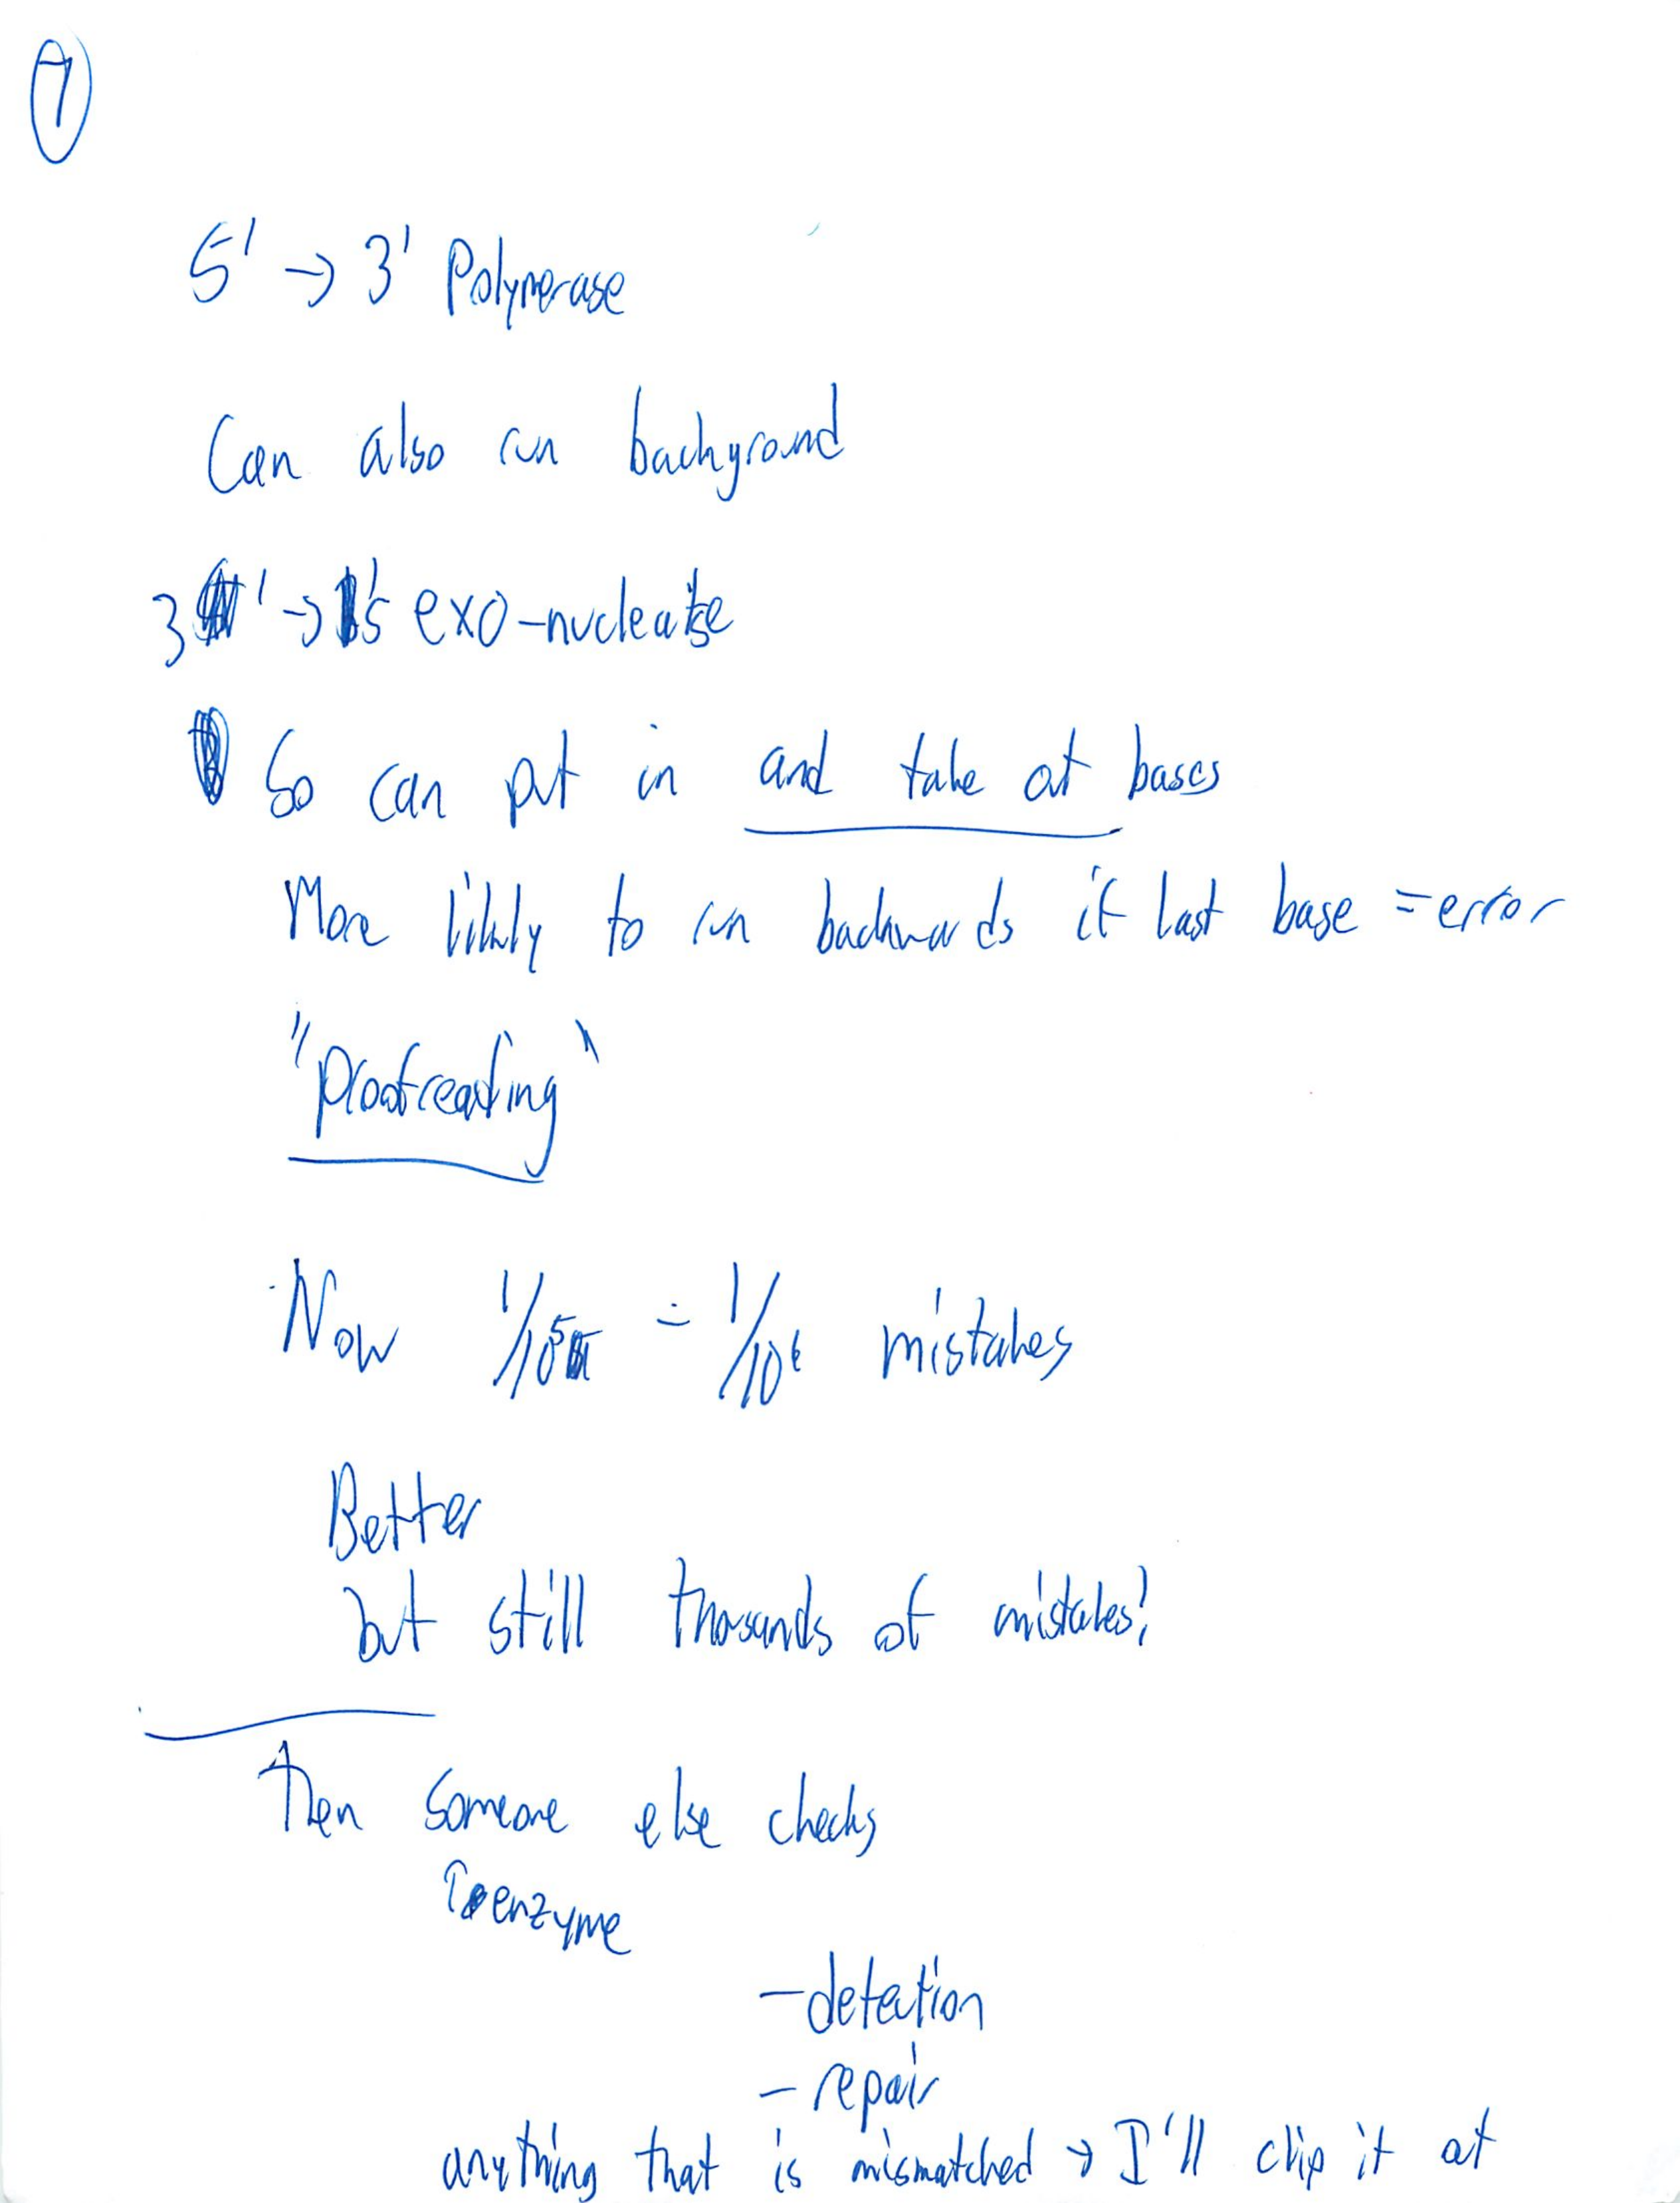 7
5' → 3' Polymerase
Can also run background
3' → 5' exo-nuclease
So can put in and take out bases
More likely to run backwards if last base = error
"Proofreading"
Now 1/10^5 - 1/10^6 mistakes
Better
but still thousands of mistakes!
Then someone else checks
enzyme
- detection
- repair
anything that is mismatched → I'll clip it out